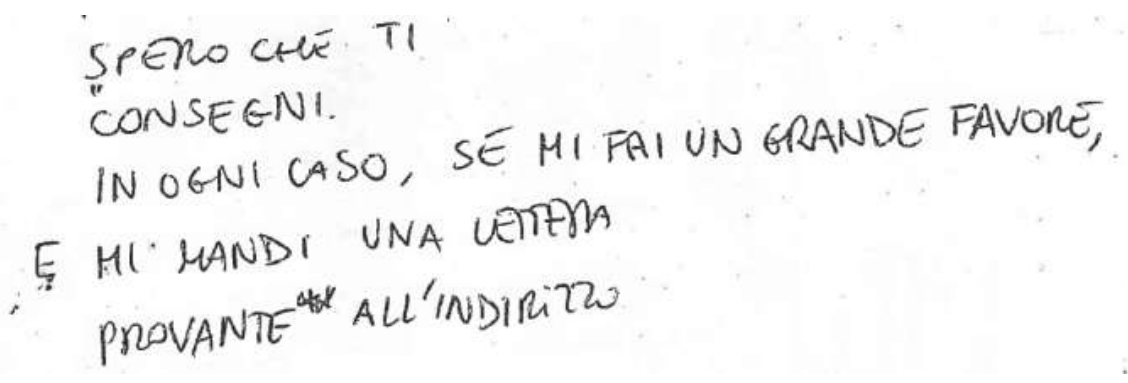 SPERO CHE TI
CONSEGNI.
IN OGNI CASO, SE MI FAI UN GRANDE FAVORE,
E MI MANDI UNA LETTERA
PROVANTE ALL'INDIRIZZO